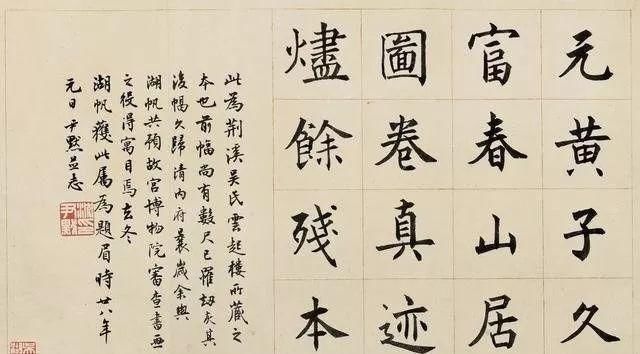 元黃子久
富春山居
圖卷真迹
燼餘殘本
此為荆溪吳氏雲起樓所藏之
本也前幅尚有數尺已罹劫灰其
後幅久歸清内府曩歲余與
湖帆共預故宮博物院審查書画
之役得寓目焉去冬
湖帆獲此属為題眉時廿八年
元日尹默並志